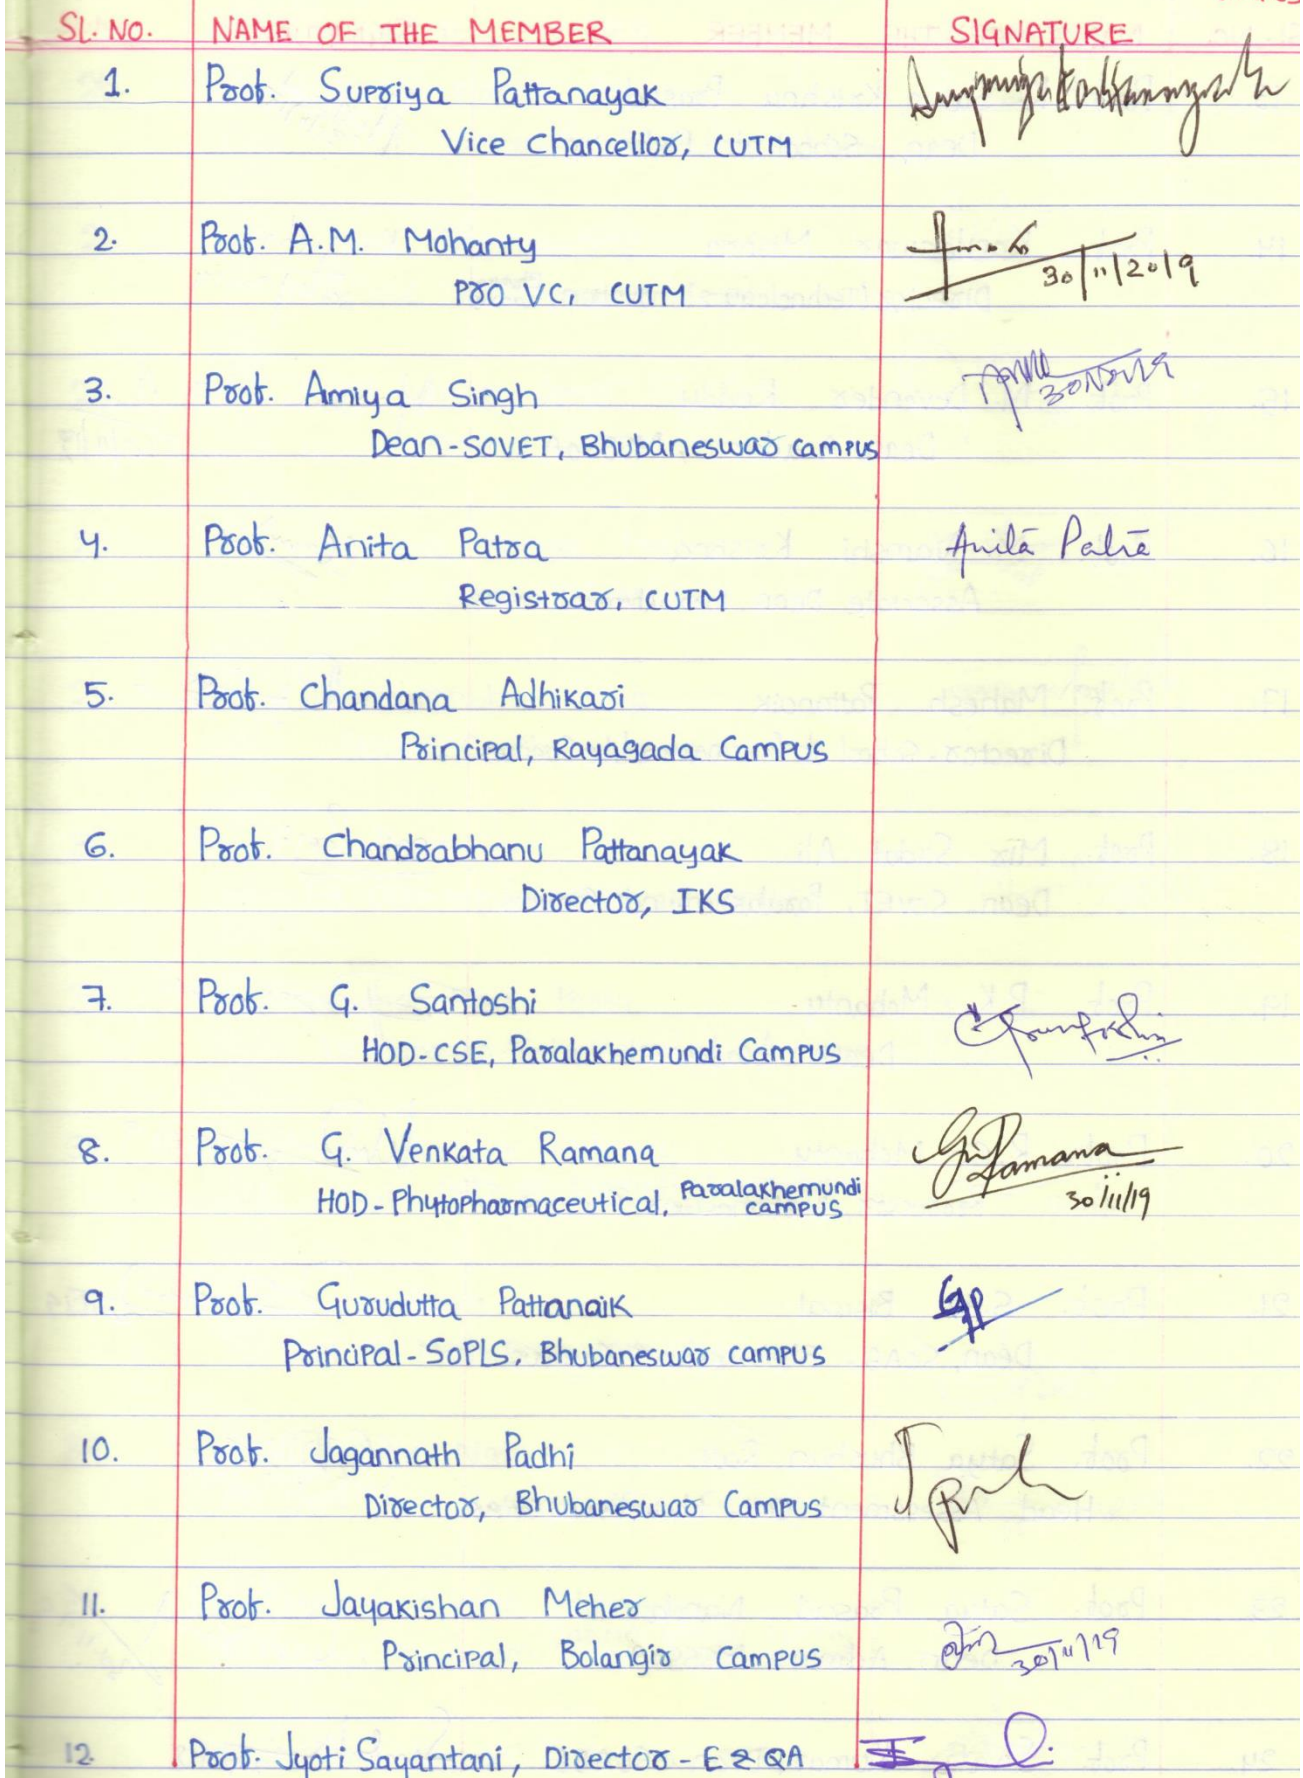 SL. NO. NAME OF THE MEMBER SIGNATURE
1. Prof. Supriya Pattanayak
Vice Chancellor, CUTM
2. Prof. A.M. Mohanty
Pro VC, CUTM 30/11/2019
3. Prof. Amiya Singh
Dean-SOVET, Bhubaneswar campus
4. Prof. Anita Patra Anita Patra
Registrar, CUTM
5. Prof. Chandana Adhikari
Principal, Rayagada Campus
6. Prof. Chandrabhanu Pattanayak
Director, IKS
7. Prof. G. Santoshi
HOD-CSE, Paralakhemundi Campus
8. Prof. G. Venkata Ramana GV Ramana
HOD-Phytopharmaceutical, Paralakhemundi campus 30/11/19
9. Prof. Gurudutta Pattanaik GP
Principal-SoPLS, Bhubaneswar campus
10. Prof. Jagannath Padhi
Director, Bhubaneswar Campus
11. Prof. Jayakishan Meher
Principal, Bolangir Campus 30/11/19
12. Prof. Jyoti Sayantani, Director-E & QA